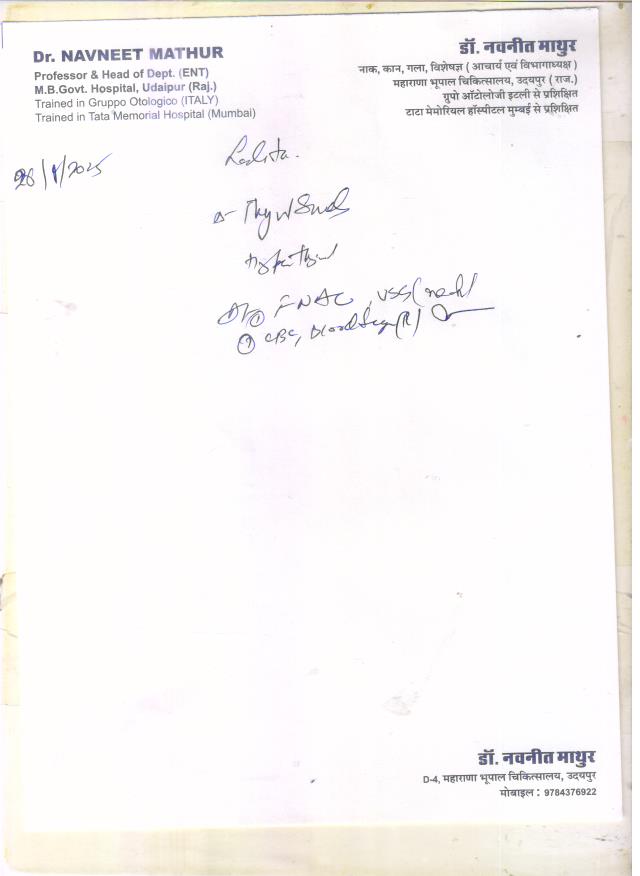 Dr. NAVNEET MATHUR
Professor & Head of Dept. (ENT)
M.B.Govt. Hospital, Udaipur (Raj.)
Trained in Gruppo Otologico (ITALY)
Trained in Tata Memorial Hospital (Mumbai)
डॉ. नवनीत माथुर
नाक, कान, गला, विशेषज्ञ ( आचार्य एवं विभागाध्यक्ष )
महाराणा भूपाल चिकित्सालय, उदयपुर ( राज.)
ग्रुपो ऑटोलोजी इटली से प्रशिक्षित
टाटा मेमोरियल हॉस्पीटल मुम्बई से प्रशिक्षित
Lalita.
FNAC, USG (neck)
CBC, Blood Sugar (R)
डॉ. नवनीत माथुर
D-4, महाराणा भूपाल चिकित्सालय, उदयपुर
मोबाइल : 9784376922